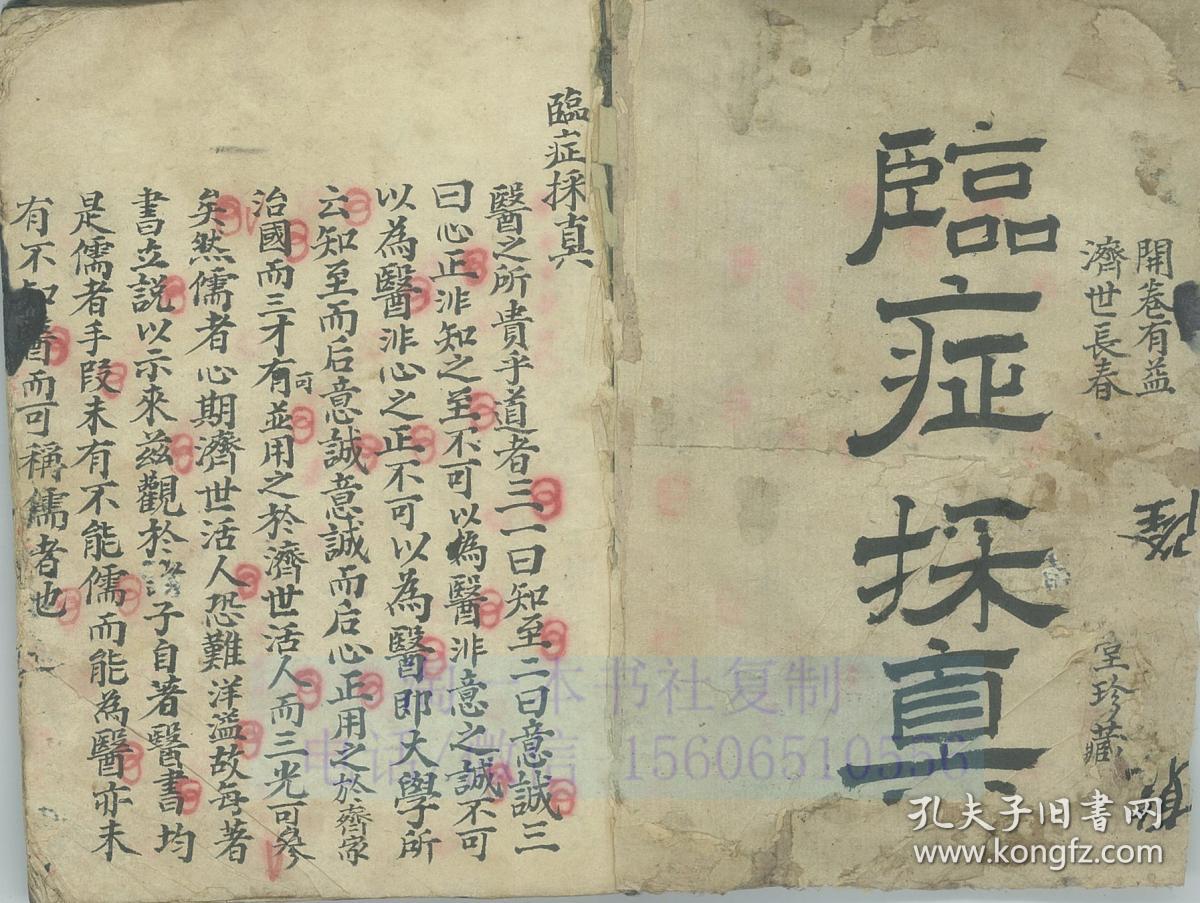 開卷有益
濟世長春
堂珍藏
臨症採真
臨症採真
醫之所貴乎道者三一曰知至二曰意誠三
曰心正非知之至不可以為醫非意之誠不可
以為醫非心之正不可以為醫即大學所
云知至而后意誠意誠而后心正用之於齊家
治國而三才有可並用之於濟世活人而三光可參
矣然儒者心期濟世活人恐難洋溢故每著
書立說以示來茲觀於諸子自著醫書均
是儒者手段未有不能儒而能為醫亦未
有不知醫而可稱儒者也
本书社复制
电话/微信 15606510556
孔夫子旧书网
www.kongfz.com